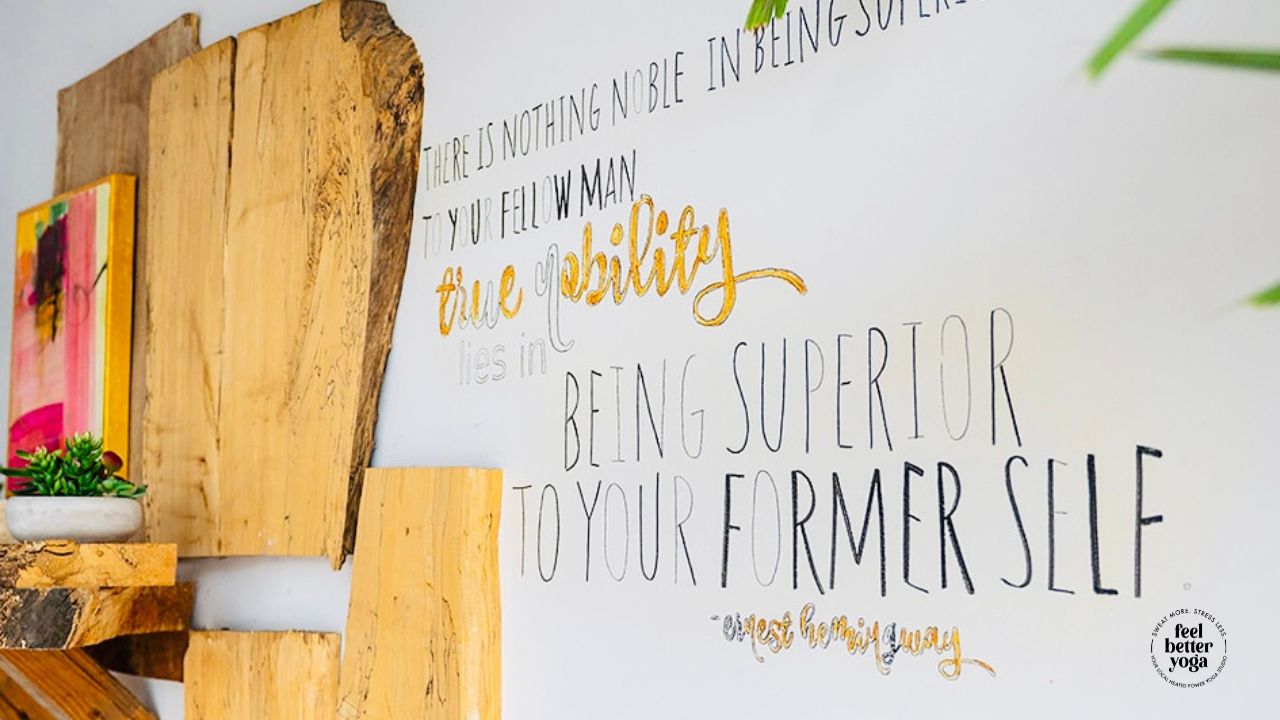 THERE IS NOTHING NOBLE IN BEING SUPERI
TO YOUR FELLOW MAN.
true nobility
lies in
BEING SUPERIOR
TO YOUR FORMER SELF.
-ernest hemingway
SWEAT MORE. STRESS LESS
feel
better
yoga
YOUR LOCAL HEATED POWER YOGA STUDIO